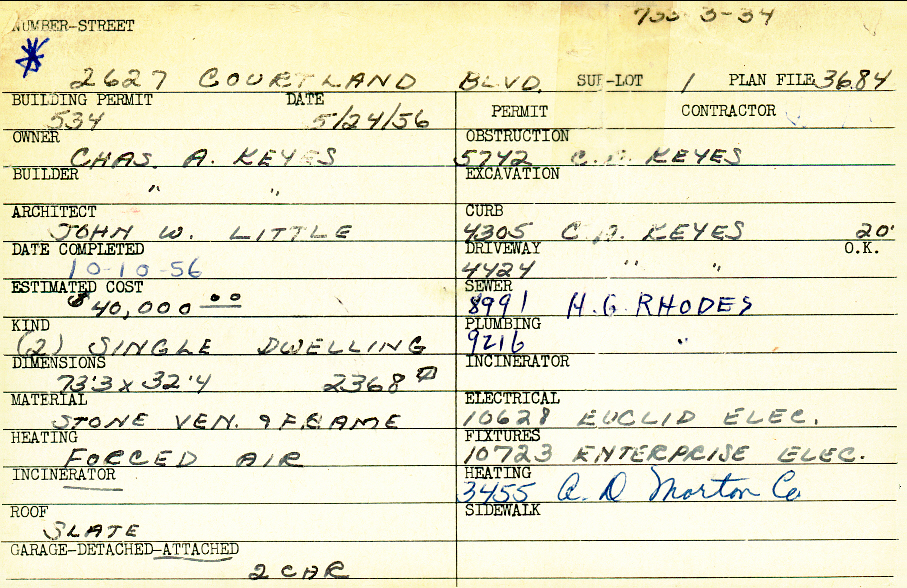 733-3-34
NUMBER-STREET
2627 COURTLAND BLVD. SUF-LOT 1 PLAN FILE 3684
BUILDING PERMIT DATE
534 5/24/56
OWNER
CHAS. A. KEYES
BUILDER
" "
ARCHITECT
JOHN W. LITTLE
DATE COMPLETED
10-10-56
ESTIMATED COST
$40,000.00
KIND
(2) SINGLE DWELLING
DIMENSIONS
73'3 x 32'4 2368
MATERIAL
STONE VEN. & FRAME
HEATING
FORCED AIR
INCINERATOR
ROOF
SLATE
GARAGE-DETACHED-ATTACHED
2 CAR
PERMIT CONTRACTOR
OBSTRUCTION
5742 C.A. KEYES
EXCAVATION
CURB
4305 C.A. KEYES 20'
DRIVEWAY O.K.
4424 " "
SEWER
8991 H.G. RHODES
PLUMBING
9216 "
INCINERATOR
ELECTRICAL
10628 EUCLID ELEC.
FIXTURES
10723 ENTERPRISE ELEC.
HEATING
3455 A. D Morton Co
SIDEWALK